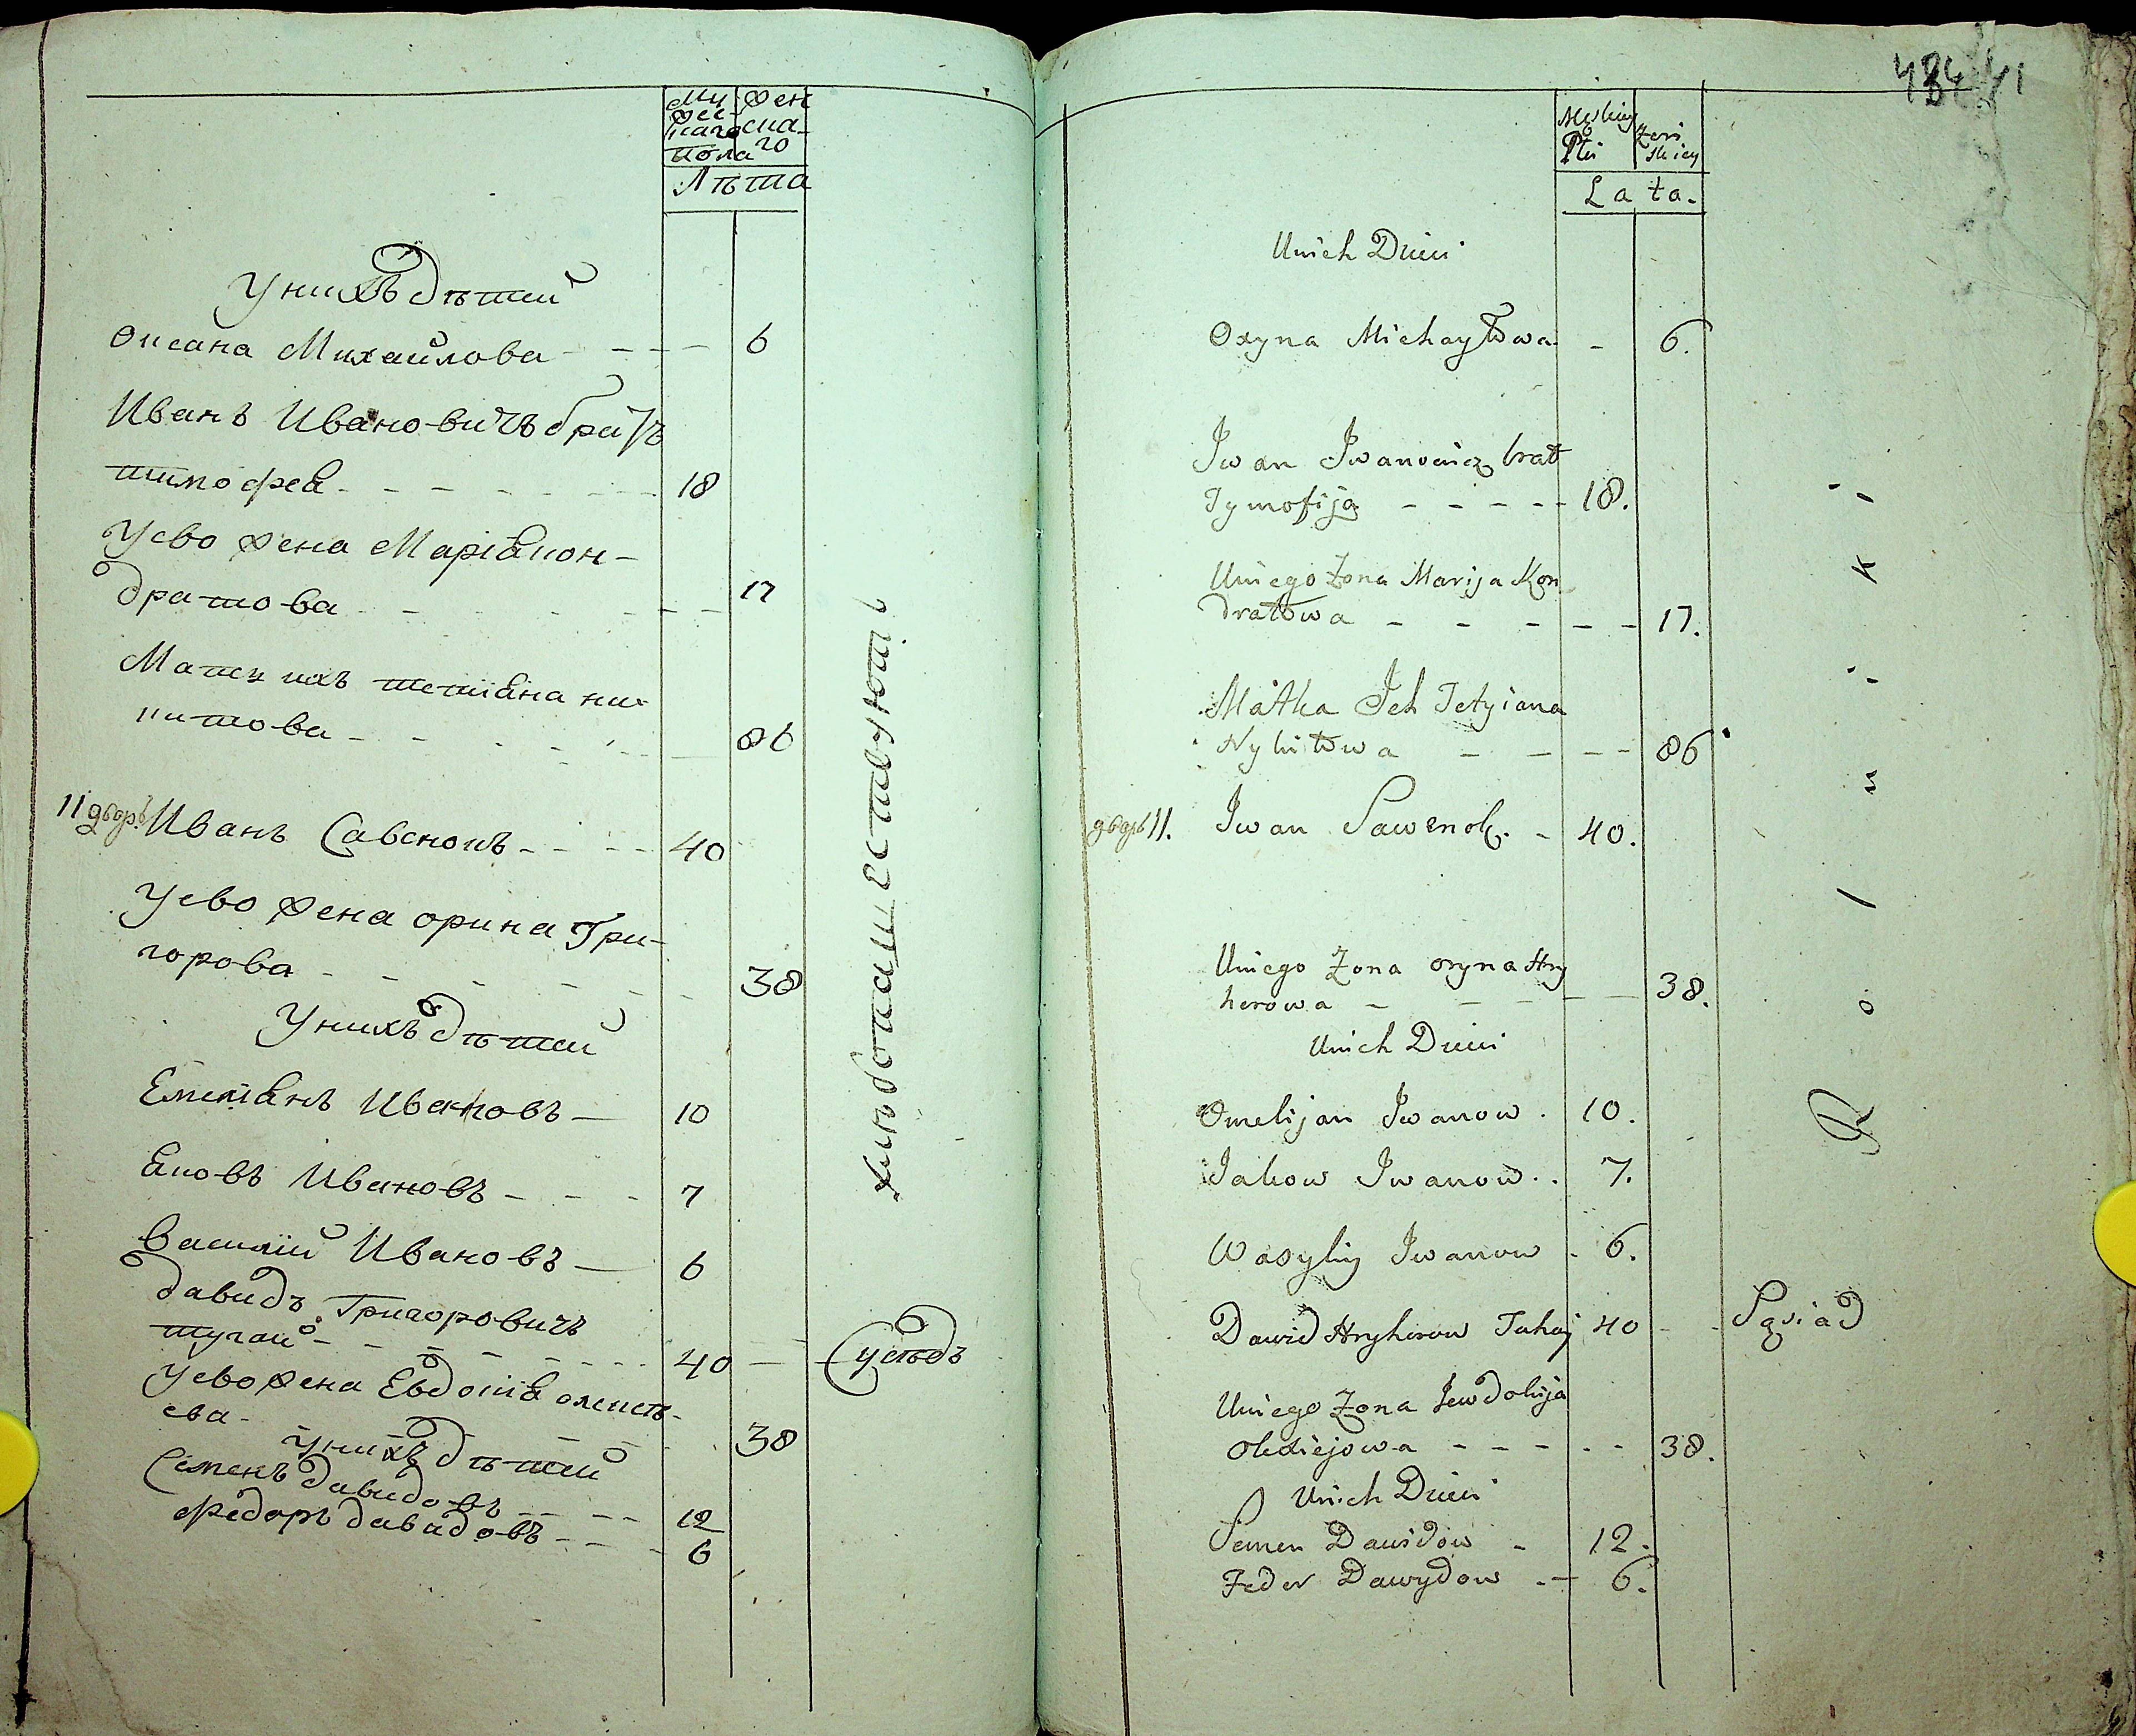 Му
жес-
каго
пола
Жен
ска-
го
Лѣта
У нихъ дѣтей
Оксана Михайлова - - - 6
Иванъ Ивановичъ братъ
тимофея - - - - - - 18
У ево жена Маріа кон-
дратова - - - - - - 17
Матка ихъ тетіана ни-
китова - - - - - - 86
11 дворъ Иванъ Савенокъ - - - - 40
У ево жена орина Гри-
горова - - - - - - 38
У нихъ дѣтей
Емеліанъ Ивановъ — 10
Яковъ Ивановъ - - - 7
Василій Ивановъ — 6
Давидъ Григоровичъ
тугай - - - - - - 40 — Сусѣдъ
У ево жена Евдокія олексѣ-
ева - - - - - 38
У нихъ дѣтей
Семенъ давидовъ - - - 12
Федоръ давидовъ - - - 6
хлѣбопашествуютъ
Męskiey
Płci
Żeń
skiey
Lata.
Unich Dzieci
Oxyna Michayłowa - 6.
Iwan Iwanowicz brat
Tymofija - - - - - 18.
Uniego żona Marija Kon
dratowa - - - - - 17.
Matka Ich Tetyiana
Nykitowa - - - - 86
дворъ 11. Iwan Sawenok. - 40.
Uniego Żona oryna Hry
horowa - - - - - 38.
Unich Dzieci
Omelijan Iwanow . 10.
Jakow Iwanow . . 7.
Wasyliy Iwanow . 6.
Dawid Hryhorow Tuhaj 40 - - Sąsiad
Uniego Żona Jewdokija
Olexiejowa - - - - - 38.
Unich Dzieci
Semen Dawidow - 12.
Feder Dawydow . - 6.
Rolniki